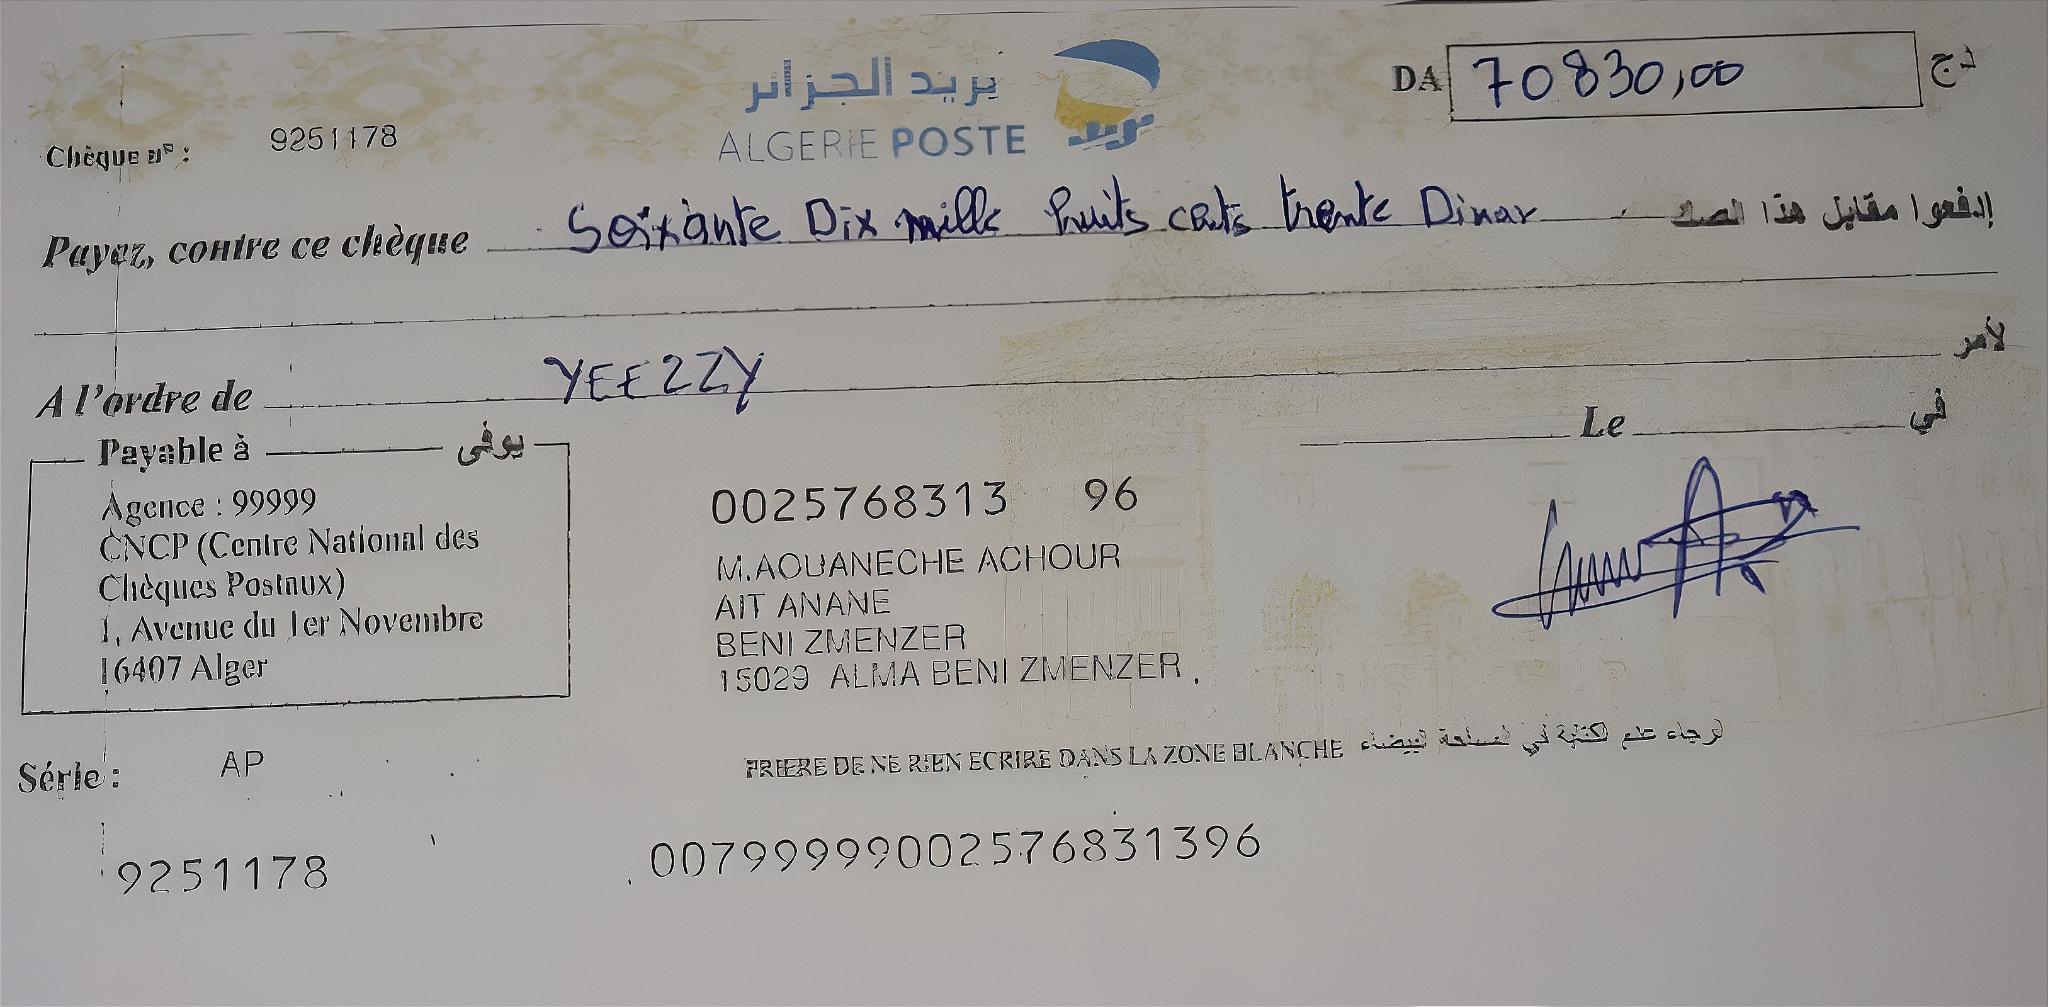 بريد الجزائر
ALGERIE POSTE
بريد
DA 70830,00 دج
Chèque n° : 9251178
Payez, contre ce chèque Soixante Dix mille huits cents trente Dinar إدفعوا مقابل هذا الصك
A l'ordre de YEEZZY لأمر
Le في
Payable à يوفى
Agence : 99999
CNCP (Centre National des
Chèques Postaux)
1, Avenue du 1er Novembre
16407 Alger
0025768313 96
M.AOUANECHE ACHOUR
AIT ANANE
BENI ZMENZER
15029 ALMA BENI ZMENZER
Série : AP
PRIERE DE NE RIEN ECRIRE DANS LA ZONE BLANCHE الرجاء عدم الكتابة في المساحة البيضاء
9251178 00799999002576831396